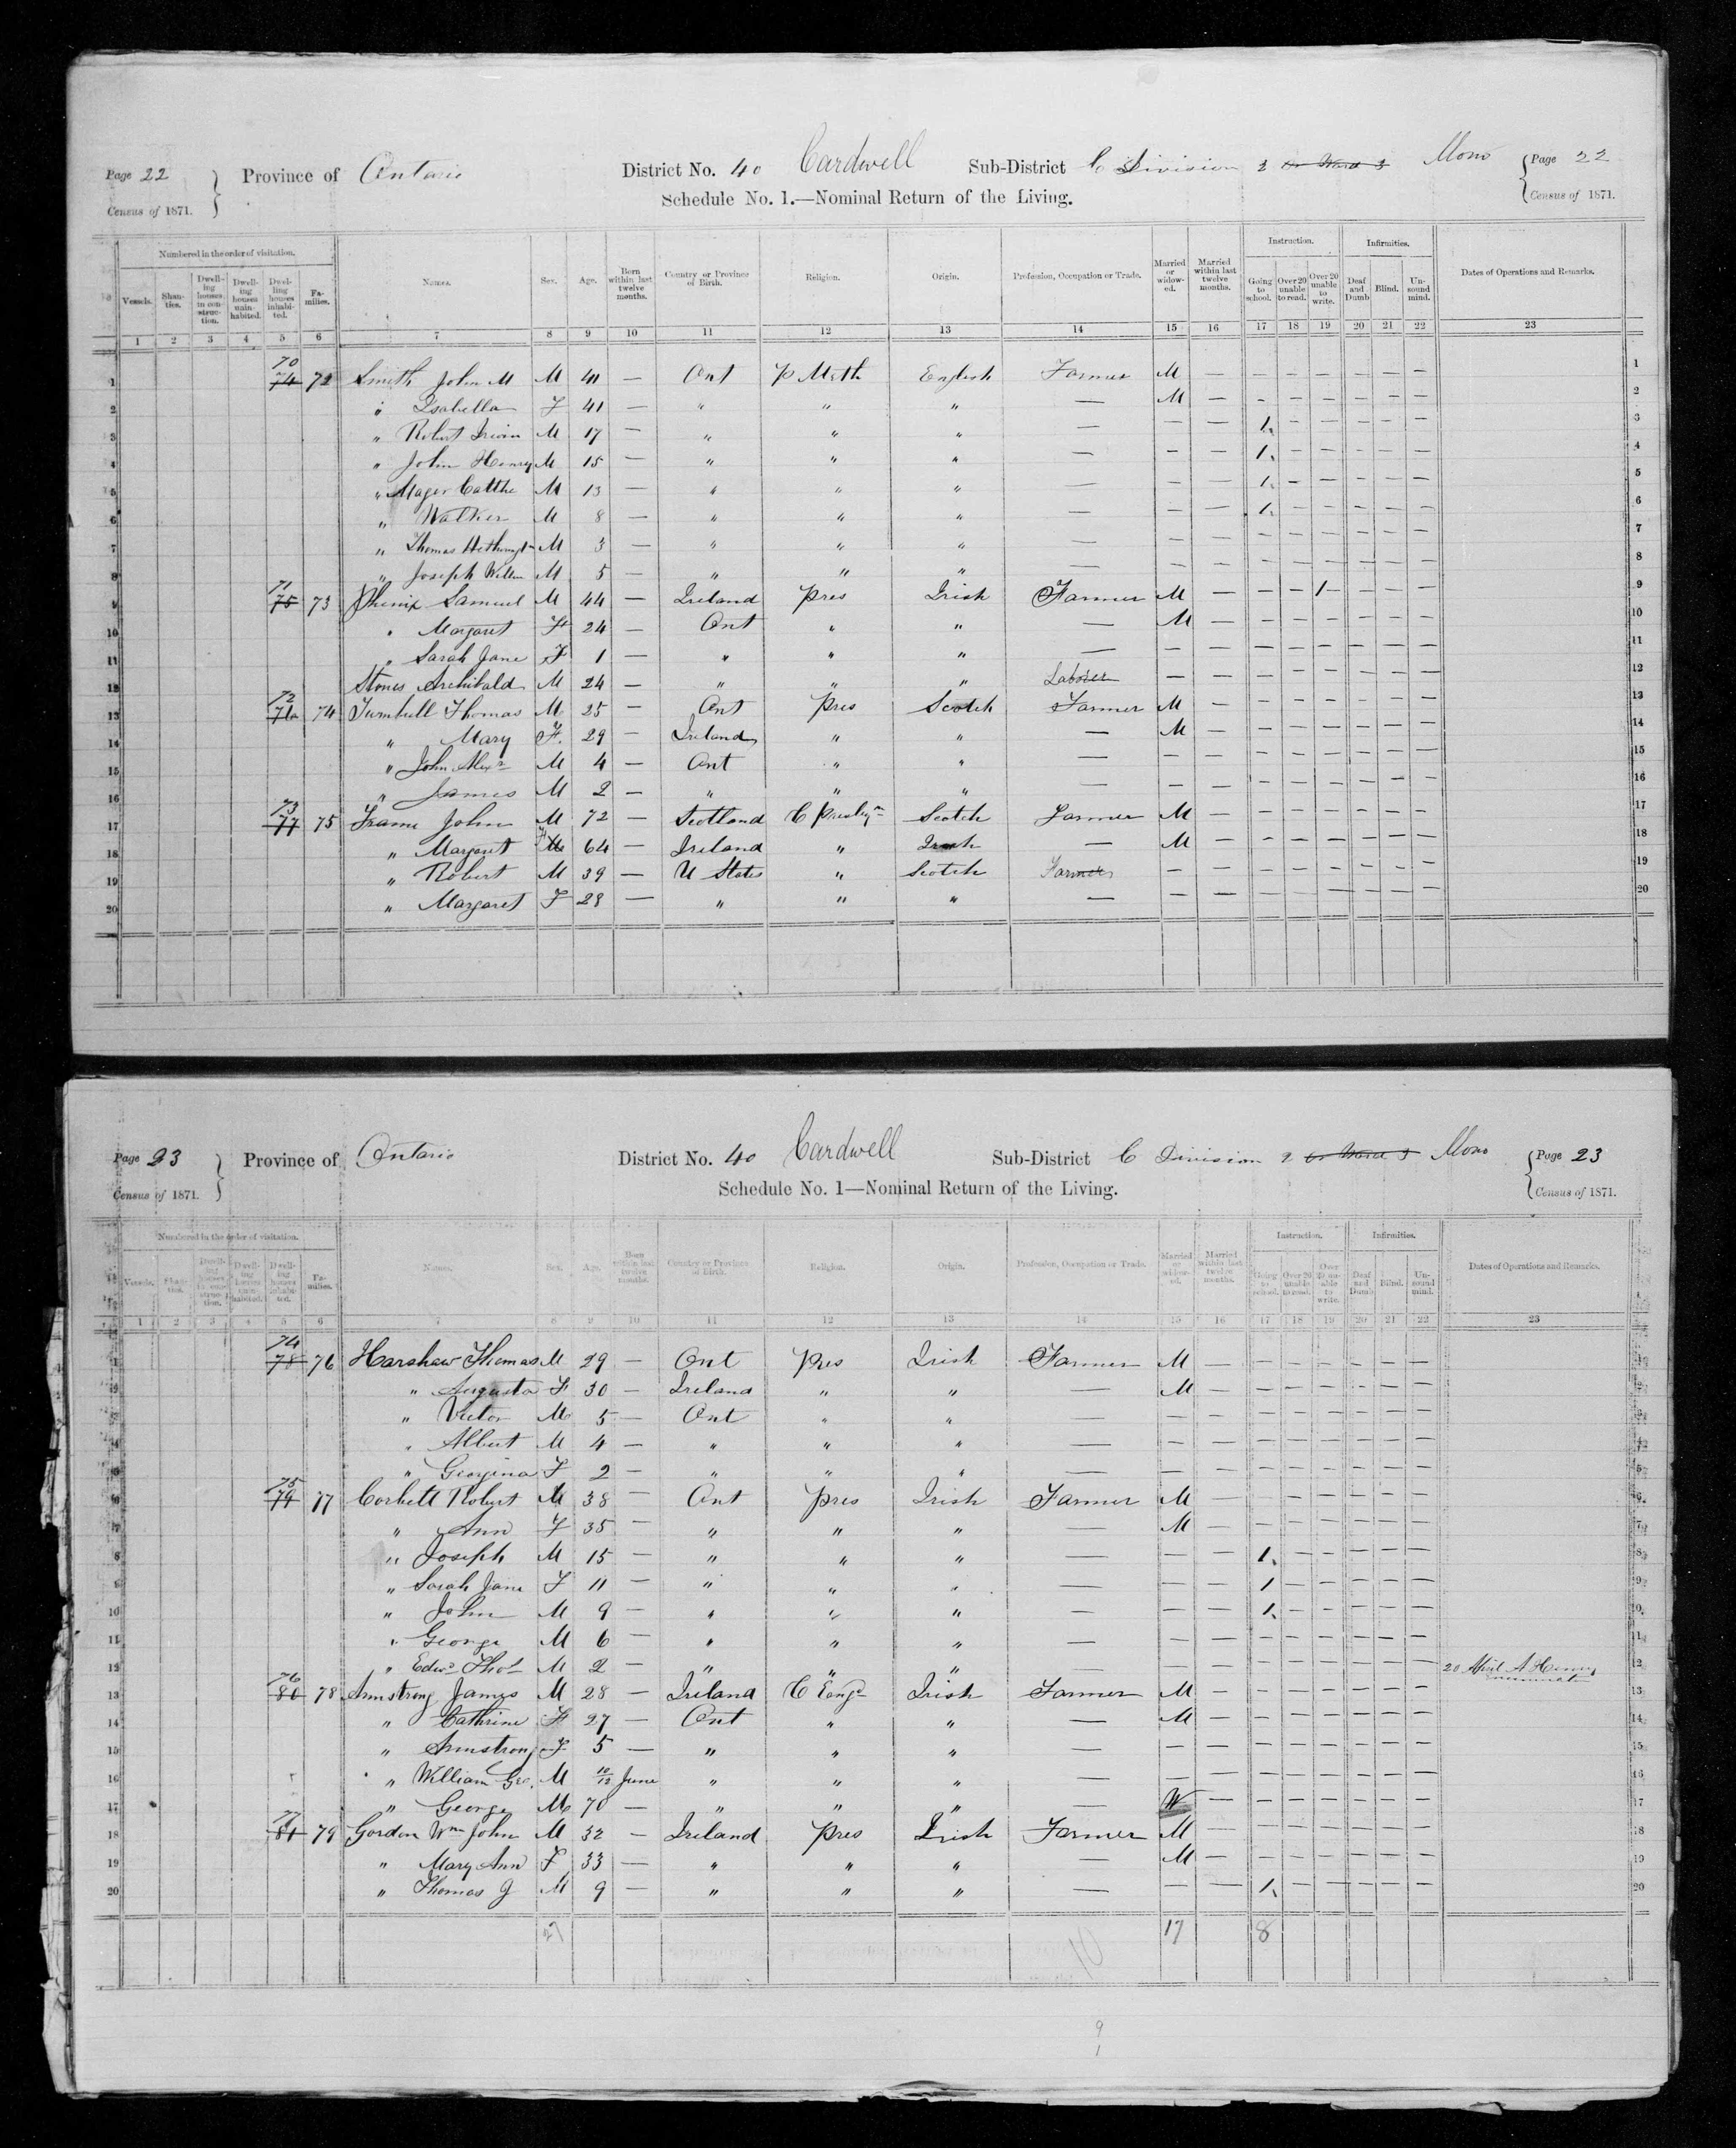 Page 22 Province of Ontario District No. 40 Cardwell Sub-District C Division 2 or Ward 3 Mono Page 22
Census of 1871. Schedule No. 1.—Nominal Return of the Living. Census of 1871.
Numbered in the order of visitation. Instruction. Infirmities.
Vessels. Shanties. Dwelling houses in construction. Dwelling houses uninhabited. Dwelling houses inhabited. Families. Names. Sex. Age. Born within last twelve months. Country or Province of Birth. Religion. Origin. Profession, Occupation or Trade. Married or widowed. Married within last twelve months. Going to school. Over 20 unable to read. Over 20 unable to write. Deaf and Dumb Blind. Unsound mind. Dates of Operations and Remarks.
1 2 3 4 5 6 7 8 9 10 11 12 13 14 15 16 17 18 19 20 21 22 23
1 70 74 72 Smith John M M 41 — Ont P Meth English Farmer M — — — — — — — 1
2 " Isabella F 41 — " " " — M — - — — — — — 2
3 " Robert Irwin M 17 — " " " — — — 1 — — — — — 3
4 " John Henry M 15 — " " " — — — 1 — — — — — 4
5 " Mager M 13 — " " " — — — 1 — — — — — 5
6 " Walker M 8 — " " " — — — 1 — — — — — 6
7 " Thomas M 3 — " " " — — — — — — — — — 7
8 " Joseph M 5 — " " " — — — — — — — — — 8
9 71 75 73 Phenix Samuel M 44 — Ireland Pres Irish Farmer M — — — 1 — — — 9
10 " Margaret F 24 — Ont " " — M — — — — — — — 10
11 " Sarah Jane F 1 — " " " — — — — — — — — — 11
12 Stones Archibald M 24 — " " " Laborer — — — — — — — — 12
13 72 76 74 Turnbull Thomas M 25 — Ont Pres Scotch Farmer M — — — — — — — 13
14 " Mary F. 29 — Ireland " " — M — — — — — — — 14
15 " John Alexr M 4 — Ont " " — — — — — — — — — 15
16 " James M 2 — " " " — — — — — — — — — 16
17 73 77 75 Frame John M 72 — Scotland C Presbyn Scotch Farmer M — — — — — — — 17
18 " Margaret F 64 — Ireland " Irish — M — — — — — — — 18
19 " Robert M 39 — U States " Scotch Farmer — — — — — — — — 19
20 " Margaret F 28 — " " " — — — — — — — — — 20
Page 23 Province of Ontario District No. 40 Cardwell Sub-District C Division 2 or Ward 3 Mono Page 23
Census of 1871. Schedule No. 1—Nominal Return of the Living. Census of 1871.
Numbered in the order of visitation. Instruction. Infirmities.
Vessels. Shanties. Dwelling houses in construction. Dwelling houses uninhabited. Dwelling houses inhabited. Families. Names. Sex. Age. Born within last twelve months. Country or Province of Birth. Religion. Origin. Profession, Occupation or Trade. Married or widowed. Married within last twelve months. Going to school. Over 20 unable to read. Over 20 unable to write. Deaf and Dumb Blind. Unsound mind. Dates of Operations and Remarks.
1 2 3 4 5 6 7 8 9 10 11 12 13 14 15 16 17 18 19 20 21 22 23
1 74 78 76 Harshaw Thomas M 29 — Ont Pres Irish Farmer M — — — — — — — 1
2 " Augusta F 30 — Ireland " " — M — — — — — — — 2
3 " Victor M 5 — Ont " " — — — — — — — — — 3
4 " Albert M 4 — " " " — — — — — — — — — 4
5 " Georgina F 2 — " " " — — — — — — — — — 5
6 75 79 77 Corbett Robert M 38 — Ont Pres Irish Farmer M — — — — — — — 6
7 " Ann F 35 — " " " — M — — — — — — — 7
8 " Joseph M 15 — " " " — — — 1 — — — — — 8
9 " Sarah Jane F 11 — " " " — — — 1 — — — — — 9
10 " John M 9 — " " " — — — 1 — — — — — 10
11 " George M 6 — " " " — — — — — — — — — 11
12 " Edwd Thos M 2 — " " " — — — — — — — — — 20 April A Henry 12
13 76 80 78 Armstrong James M 28 — Ireland C Engd Irish Farmer M — — — — — — — Enumerator 13
14 " Cathrine F 27 — Ont " " — M — — — — — — — 14
15 " Armstrong F 5 — " " " — — — — — — — — — 15
16 " William Geo. M 10/12 June " " " — — — — — — — — — 16
17 " George M 70 — " " " — W — — — — — — — 17
18 77 81 79 Gordon Wm John M 32 — Ireland Pres Irish Farmer M — — — — — — — 18
19 " Mary Ann F 33 — " " " — M — — — — — — — 19
20 " Thomas J M 9 — " " " — — — 1 — — — — — 20
27 10 17 8
9
1